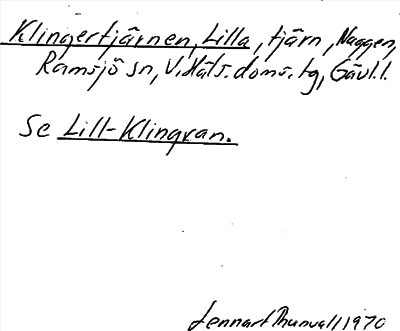 Klingertjärnen, Lilla, tjärn, Naggen,
Ramsjö sn, V. Häls. doms. tg, Gävl.l.
Se Lill-Klingran.
Lennart Thunvall 1970